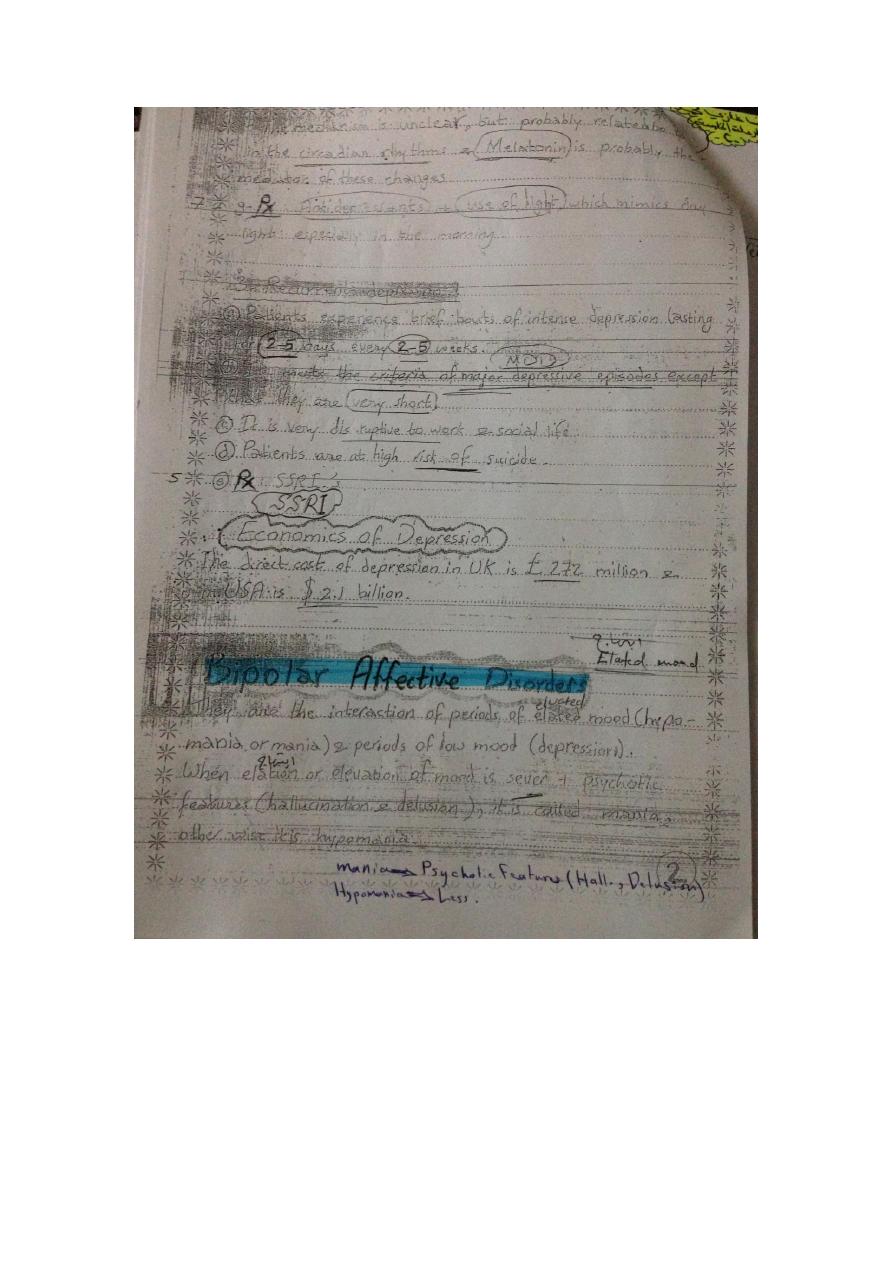 The mechanism is unclear, but probably related to
in the circadian rhythms & Melatonin is probably the
mediator of these changes
g- Rx: Antidepressants + use of light which mimics day
light especially in the morning
Recurrent depression
a Patients experience brief bouts of intense depression lasting
for 2-5 days every 2-5 weeks.
MDD
meets the criteria of major depressive episodes except
that they are very short
c It is very disruptive to work & social life.
d Patients are at high risk of suicide.
5 e Rx: SSRI's
SSRI
Economics of Depression
The direct cost of depression in UK is £ 272 million &
in USA is $ 2.1 billion.
Elated mood
Bipolar Affective Disorders
elevated
They are the interaction of periods of elated mood (hypo-
mania or mania) & periods of low mood (depression).
When elation or elevation of mood is sever + psychotic
features (hallucination & delusion), it is called mania,
other wise it is hypomania.
2
mania → Psychotic Feature (Hall., Delusion)
Hypomania → Less.